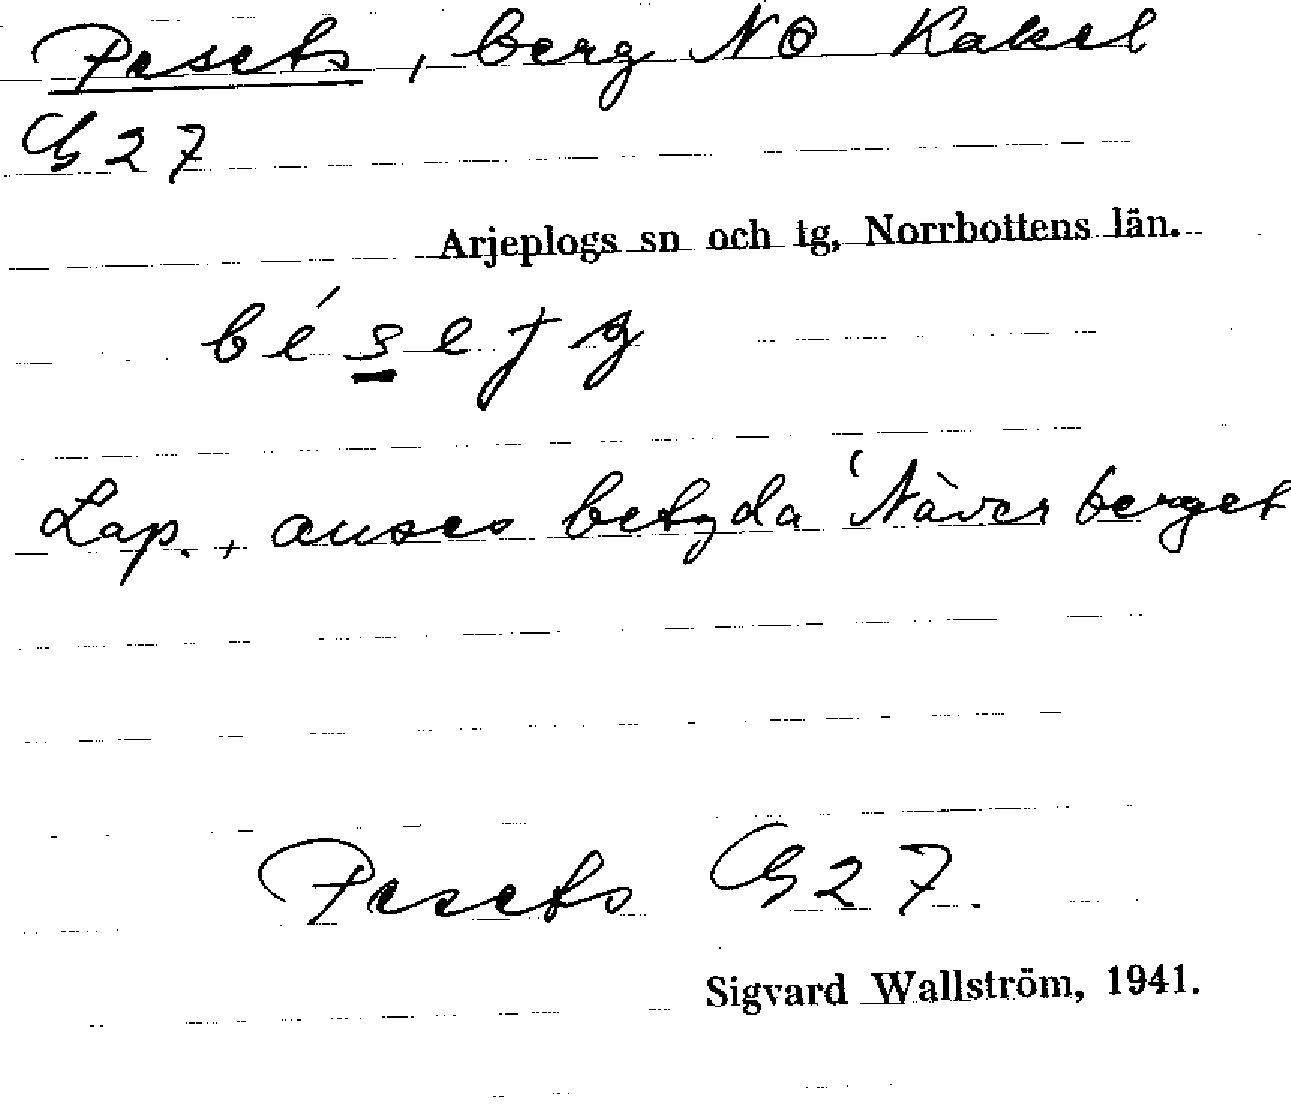 Pesets, berg NO Kakel
G 27
Arjeplogs sn och tg, Norrbottens län.
Lap., anses betyda 'Näverberget
Pesets G 27.
Sigvard Wallström, 1941.